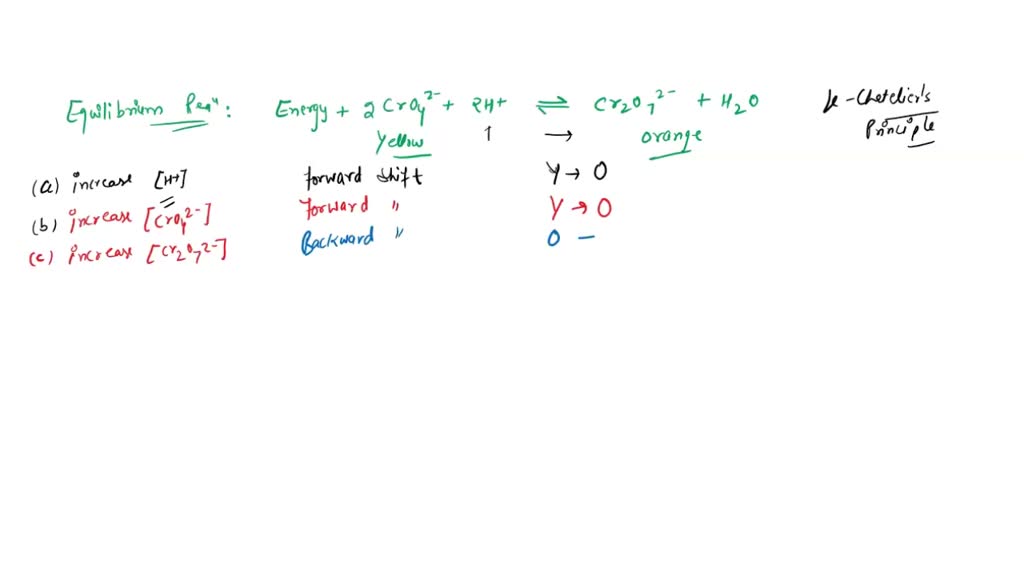 Equilibrium Reaⁿ : Energy + 2CrO₄²⁻ + 2H+ ⇌ Cr₂O₇²⁻ + H₂O
Yellow ↑ → orange
le-Chatelier's
Principle
(a) increase [H+] forward shift Y → O
(b) increase [CrO₄²⁻] Forward " Y → O
(c) increase [Cr₂O₇²⁻] Backward " O –